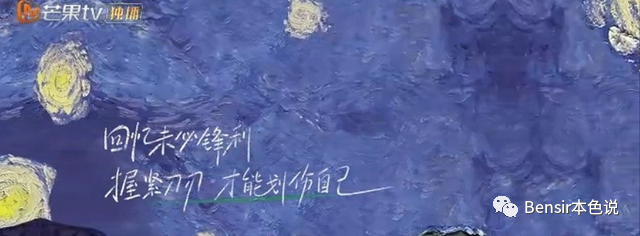 芒果tv 独播
回忆未必锋利
握紧刀刃 才能划伤自己
Bensir本色说